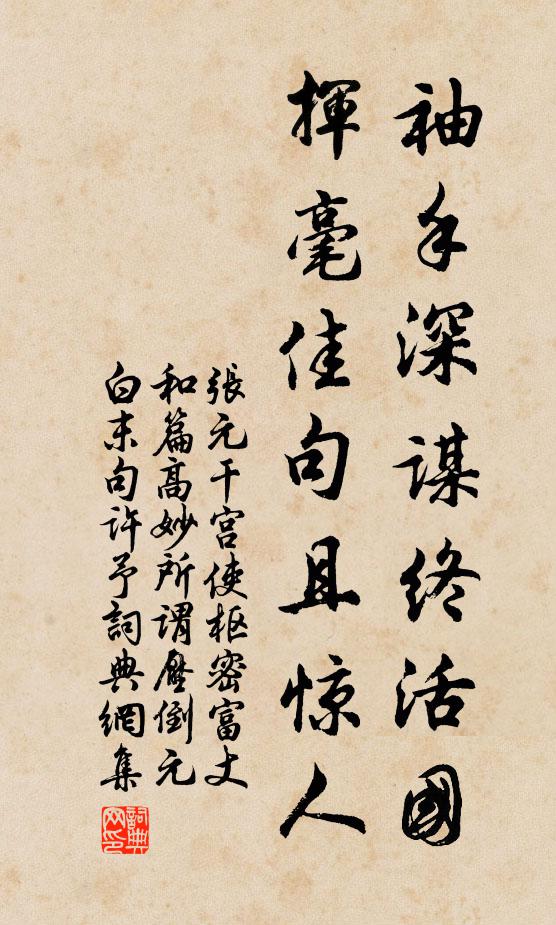 袖手深謀終活國
揮毫佳句且惊人
張元干宫使枢密富丈
和篇高妙所谓壓倒元
白末句许予詞典網集
詞典网印